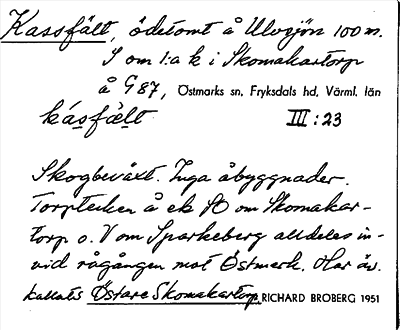 Kassfält, ödetomt å Ulvsjön 100 m.
S om 1:a k i Skomakartorp
å G87, Östmarks sn, Fryksdals hd, Värml. län
kásfält III:23
Skogbeväxt. Inga åbyggnader.
Torptecken å ek SO om Skomakar-
torp o. V om Sparkeberg alldeles in-
vid rågången mot Östmark. Har äv.
kallats Östare Skomakartorp. RICHARD BROBERG 1951